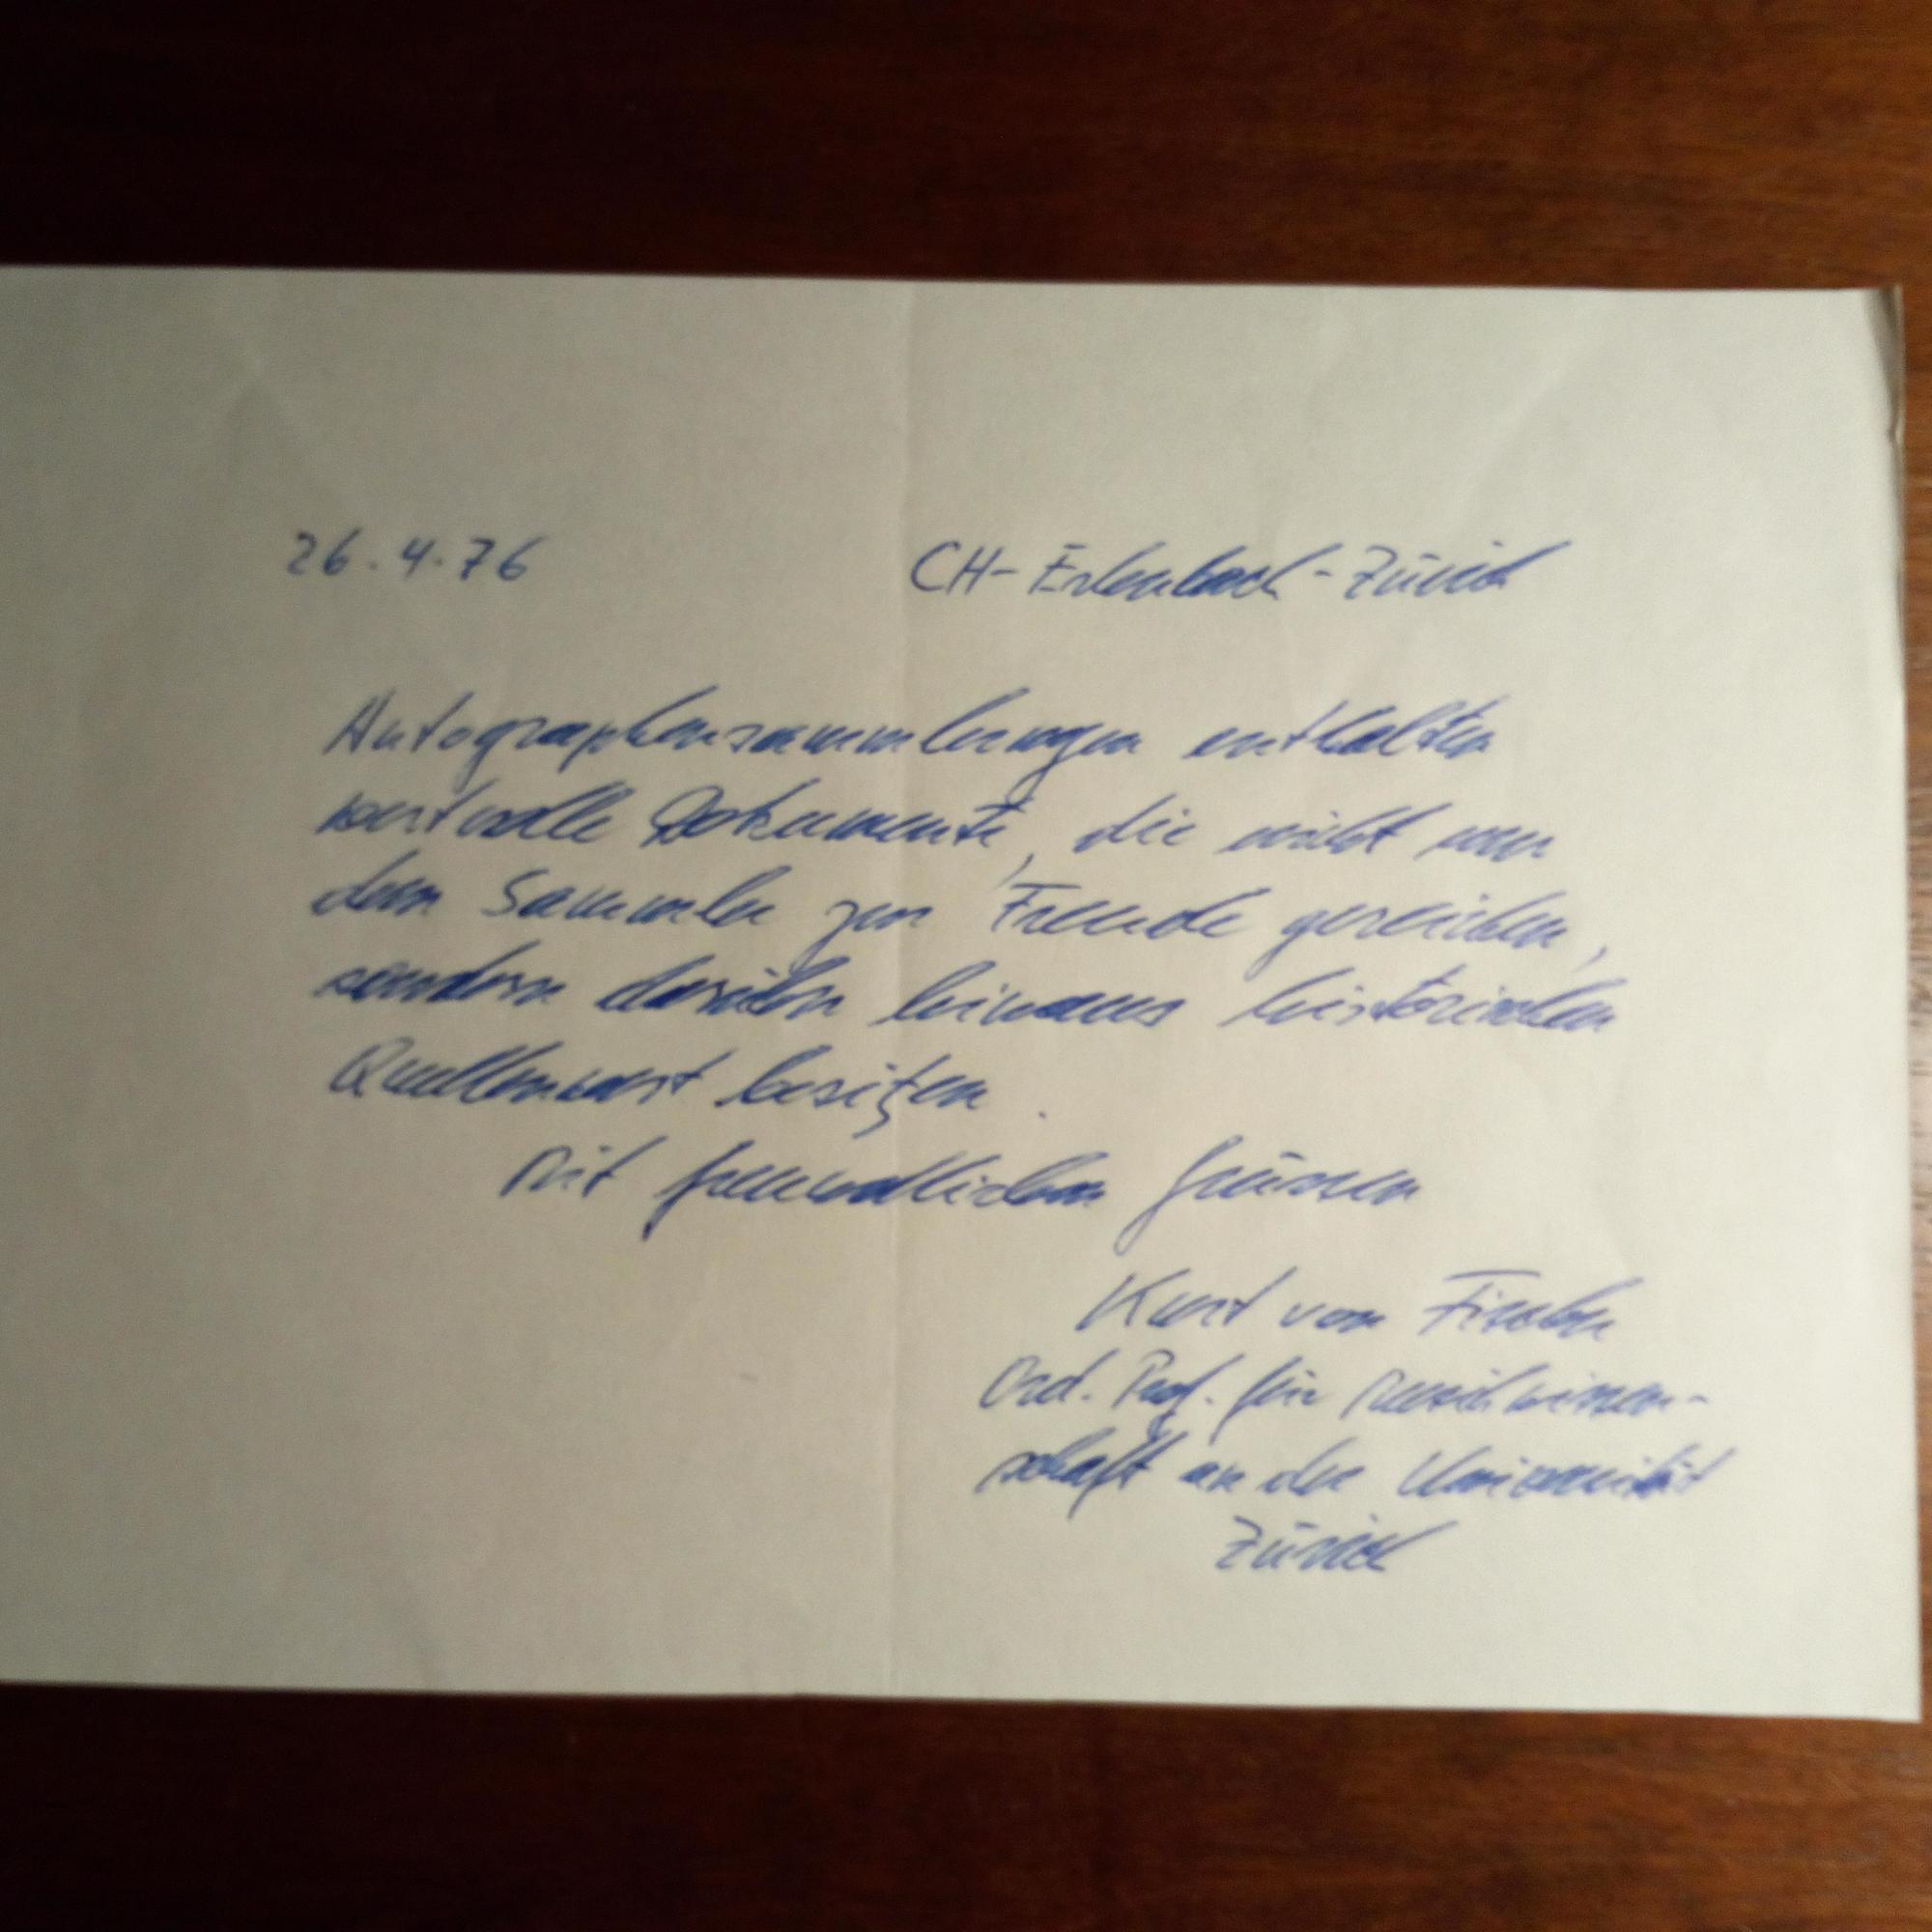 26.4.76 CH-Erlenbach-Zürich
Autographensammlungen enthalten
wertvolle Dokumente, die nicht nur
dem Sammler zur Freude gereichen,
sondern darüber hinaus historischen
Quellenwert besitzen.
Mit freundlichen Grüssen
Kurt von Fischer
Ord. Prof. für Musikwissen-
schaft an der Universität
Zürich